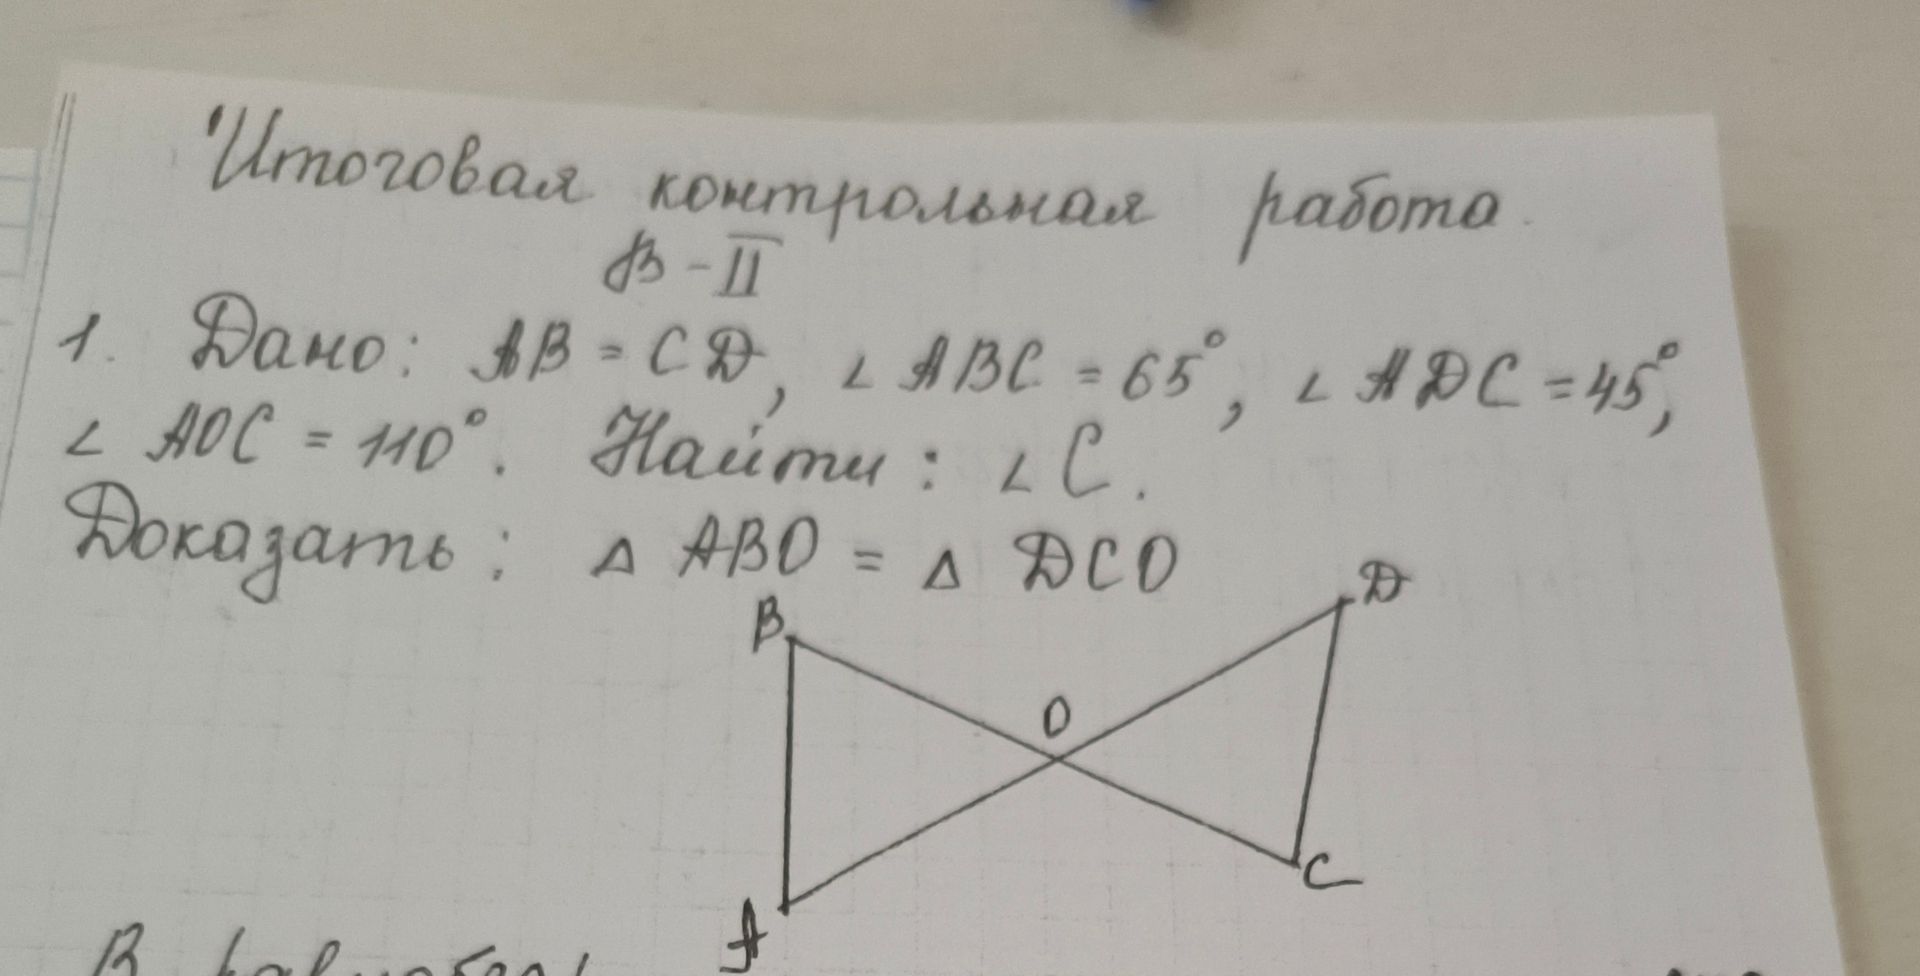 Итоговая контрольная работа.
В-II
1. Дано: AB = CD, ∠ ABC = 65°, ∠ ADC = 45°,
∠ AOC = 110°. Найти: ∠ C.
Доказать: Δ ABO = Δ DCO
B
D
O
C
A
В